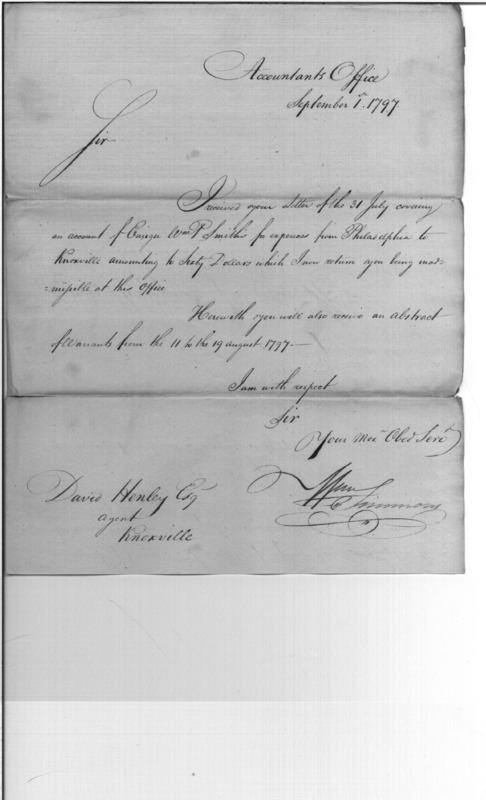 Accountants Office
September 1st. 1797
Sir
I received your letter of the 31 July covering
an account of Ensign Wm P. Smiths for expences from Philadelphia to
Knoxville amounting to Sixty Dollars which I now return you being inad-
=missible at this office
Herewith you will also receive an abstract
of Warrants from the 11 to the 19 august 1797.—
I am with respect
Sir
Your Mot Obed Servt
David Henley Esq
agent
Knoxville
Wm Simmons